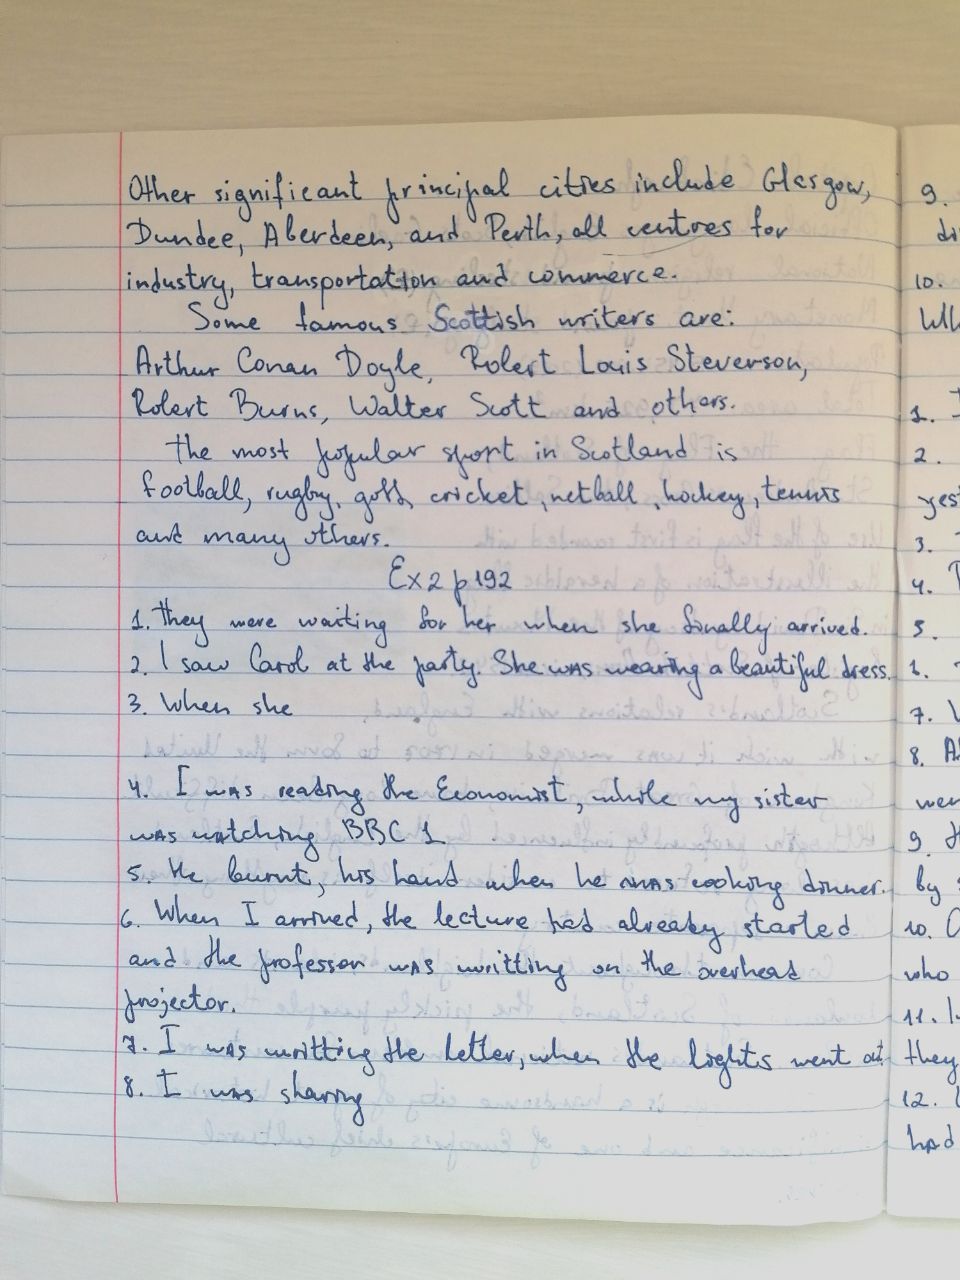 Other significant principal cities include Glasgow,
Dundee, Aberdeen, and Perth, all centres for
industry, transportation and commerce.
Some famous Scottish writers are:
Arthur Conan Doyle, Robert Louis Steverson,
Robert Burns, Walter Scott and others.
the most popular sport in Scotland is
football, rugby, golf, cricket, netball, hockey, tennis
and many others.
Ex 2 p 192
1. they were waiting for her when she finally arrived.
2. I saw Carol at the party. She was wearing a beautiful dress.
3. When she
4. I was reading the Economist, while my sister
was watching BBC 1
5. He burnt, his hand when he was cooking dinner.
6. When I arrived, the lecture had already started
and the professor was writting on the overhead
projector.
7. I was writting the letter, when the lights went out
8. I was sharing
9.
10.
1.
2.
3.
4.
5.
7.
8.
9.
by
10.
who
11.
they
12.
had